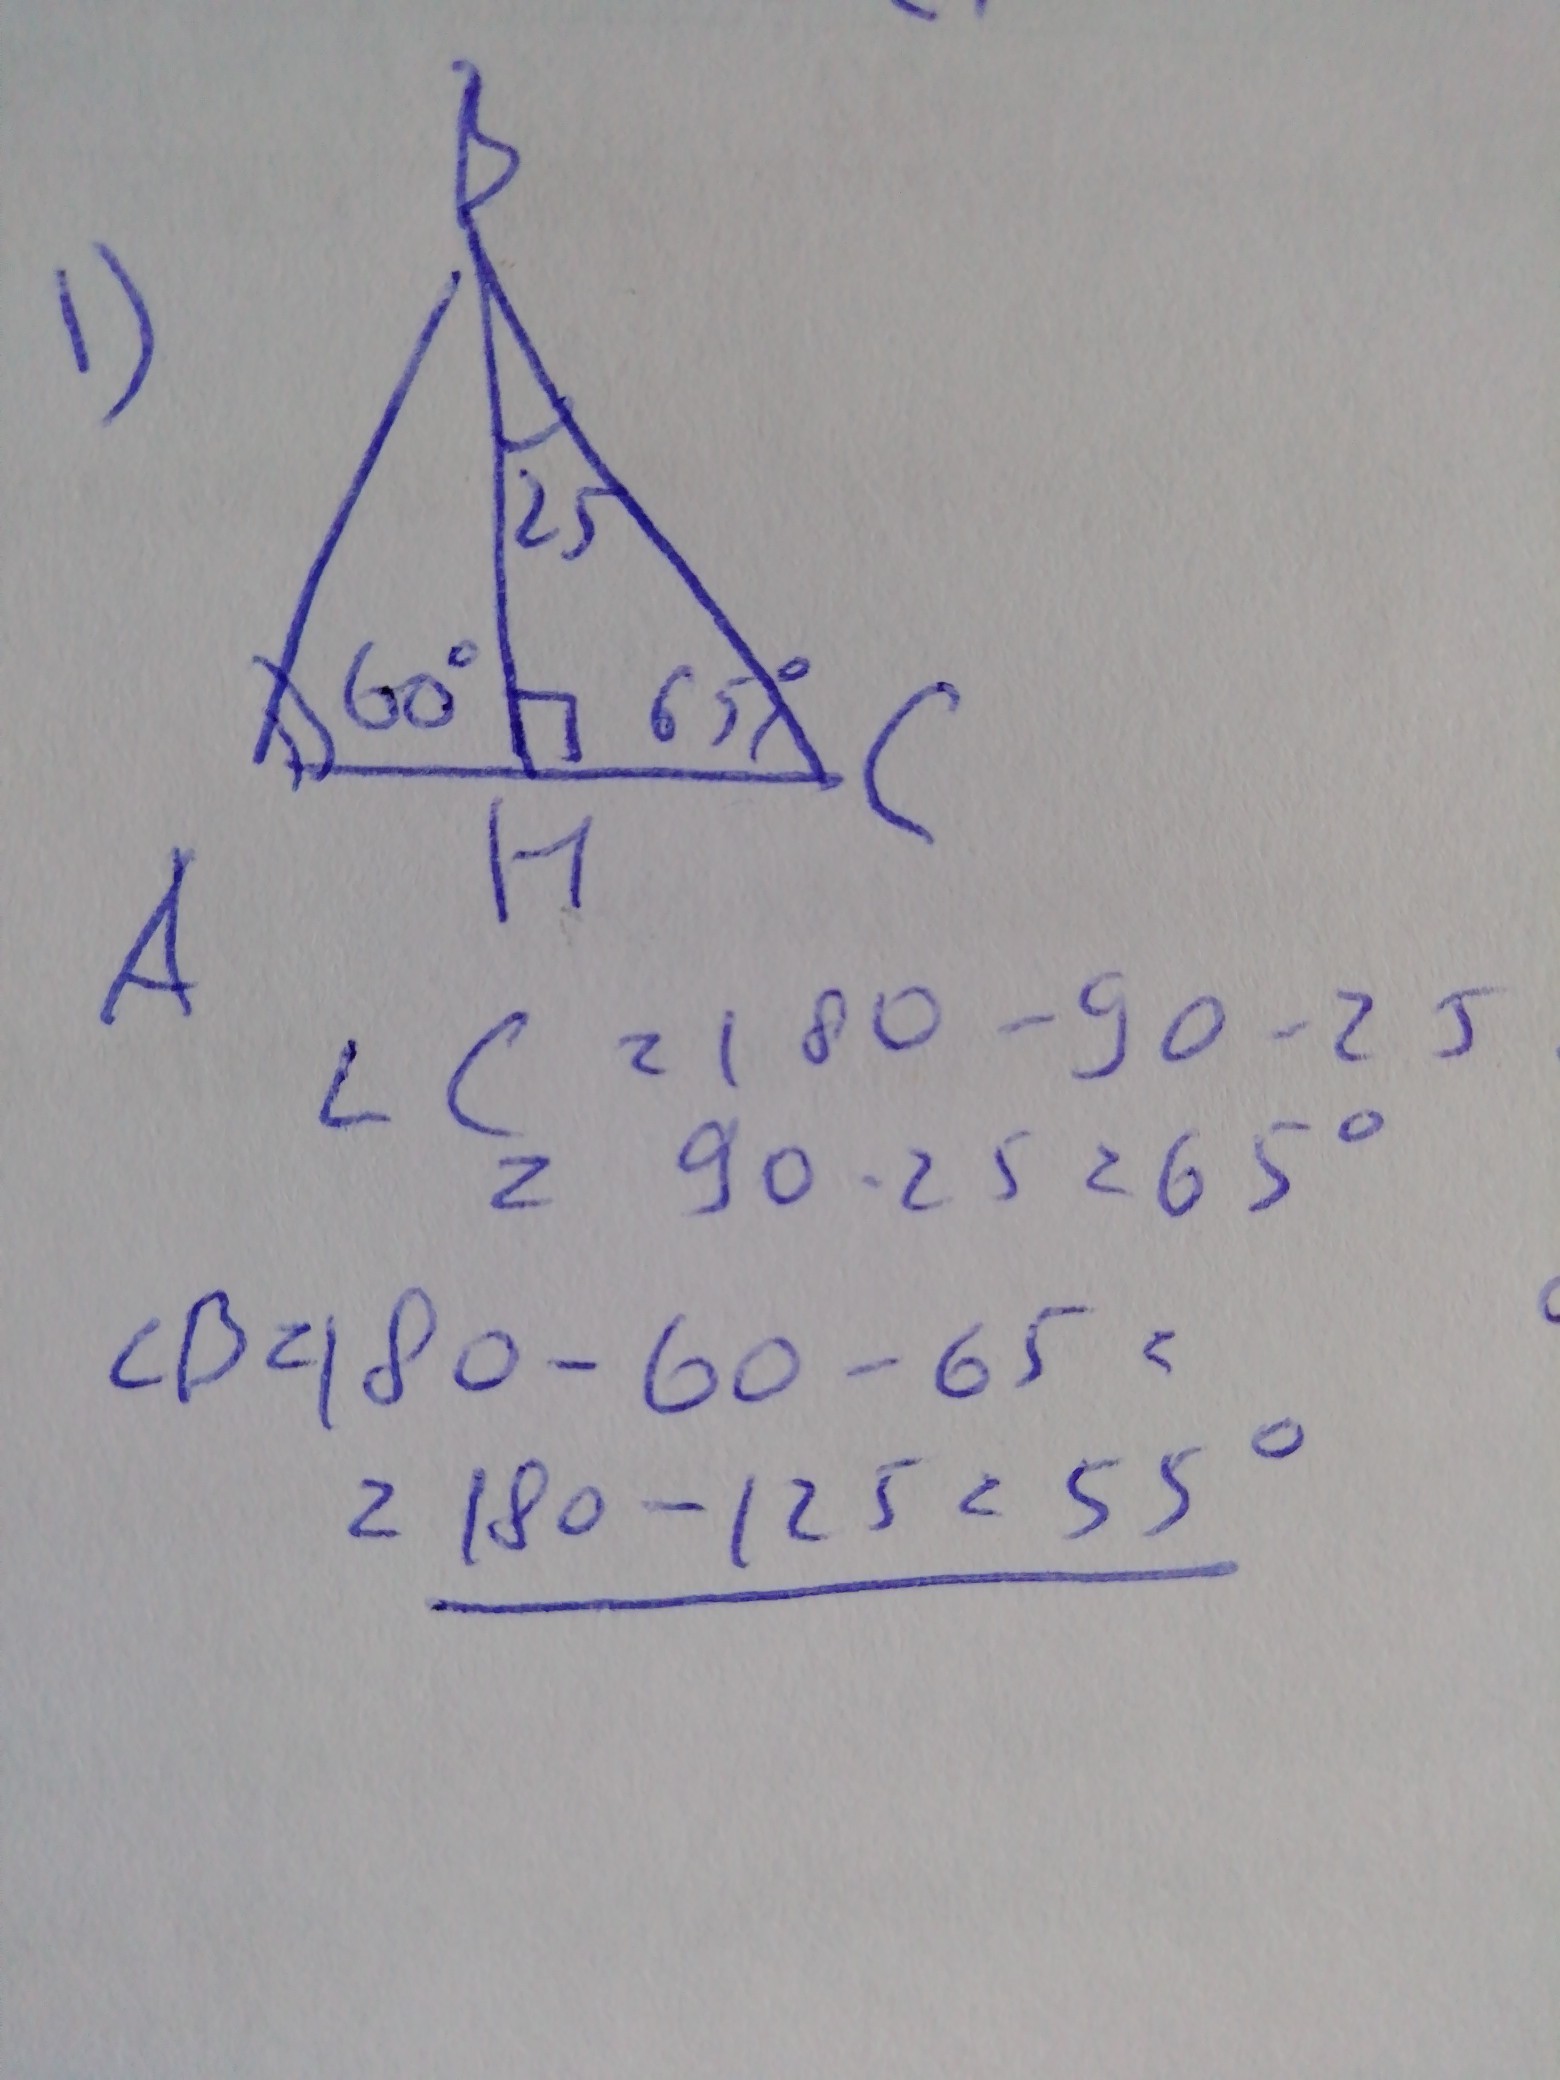 1)
B
25
60°
65°
C
H
A
∠C = 180 - 90 - 25
= 90 - 25 = 65°
∠B = 180 - 60 - 65 =
= 180 - 125 = 55°